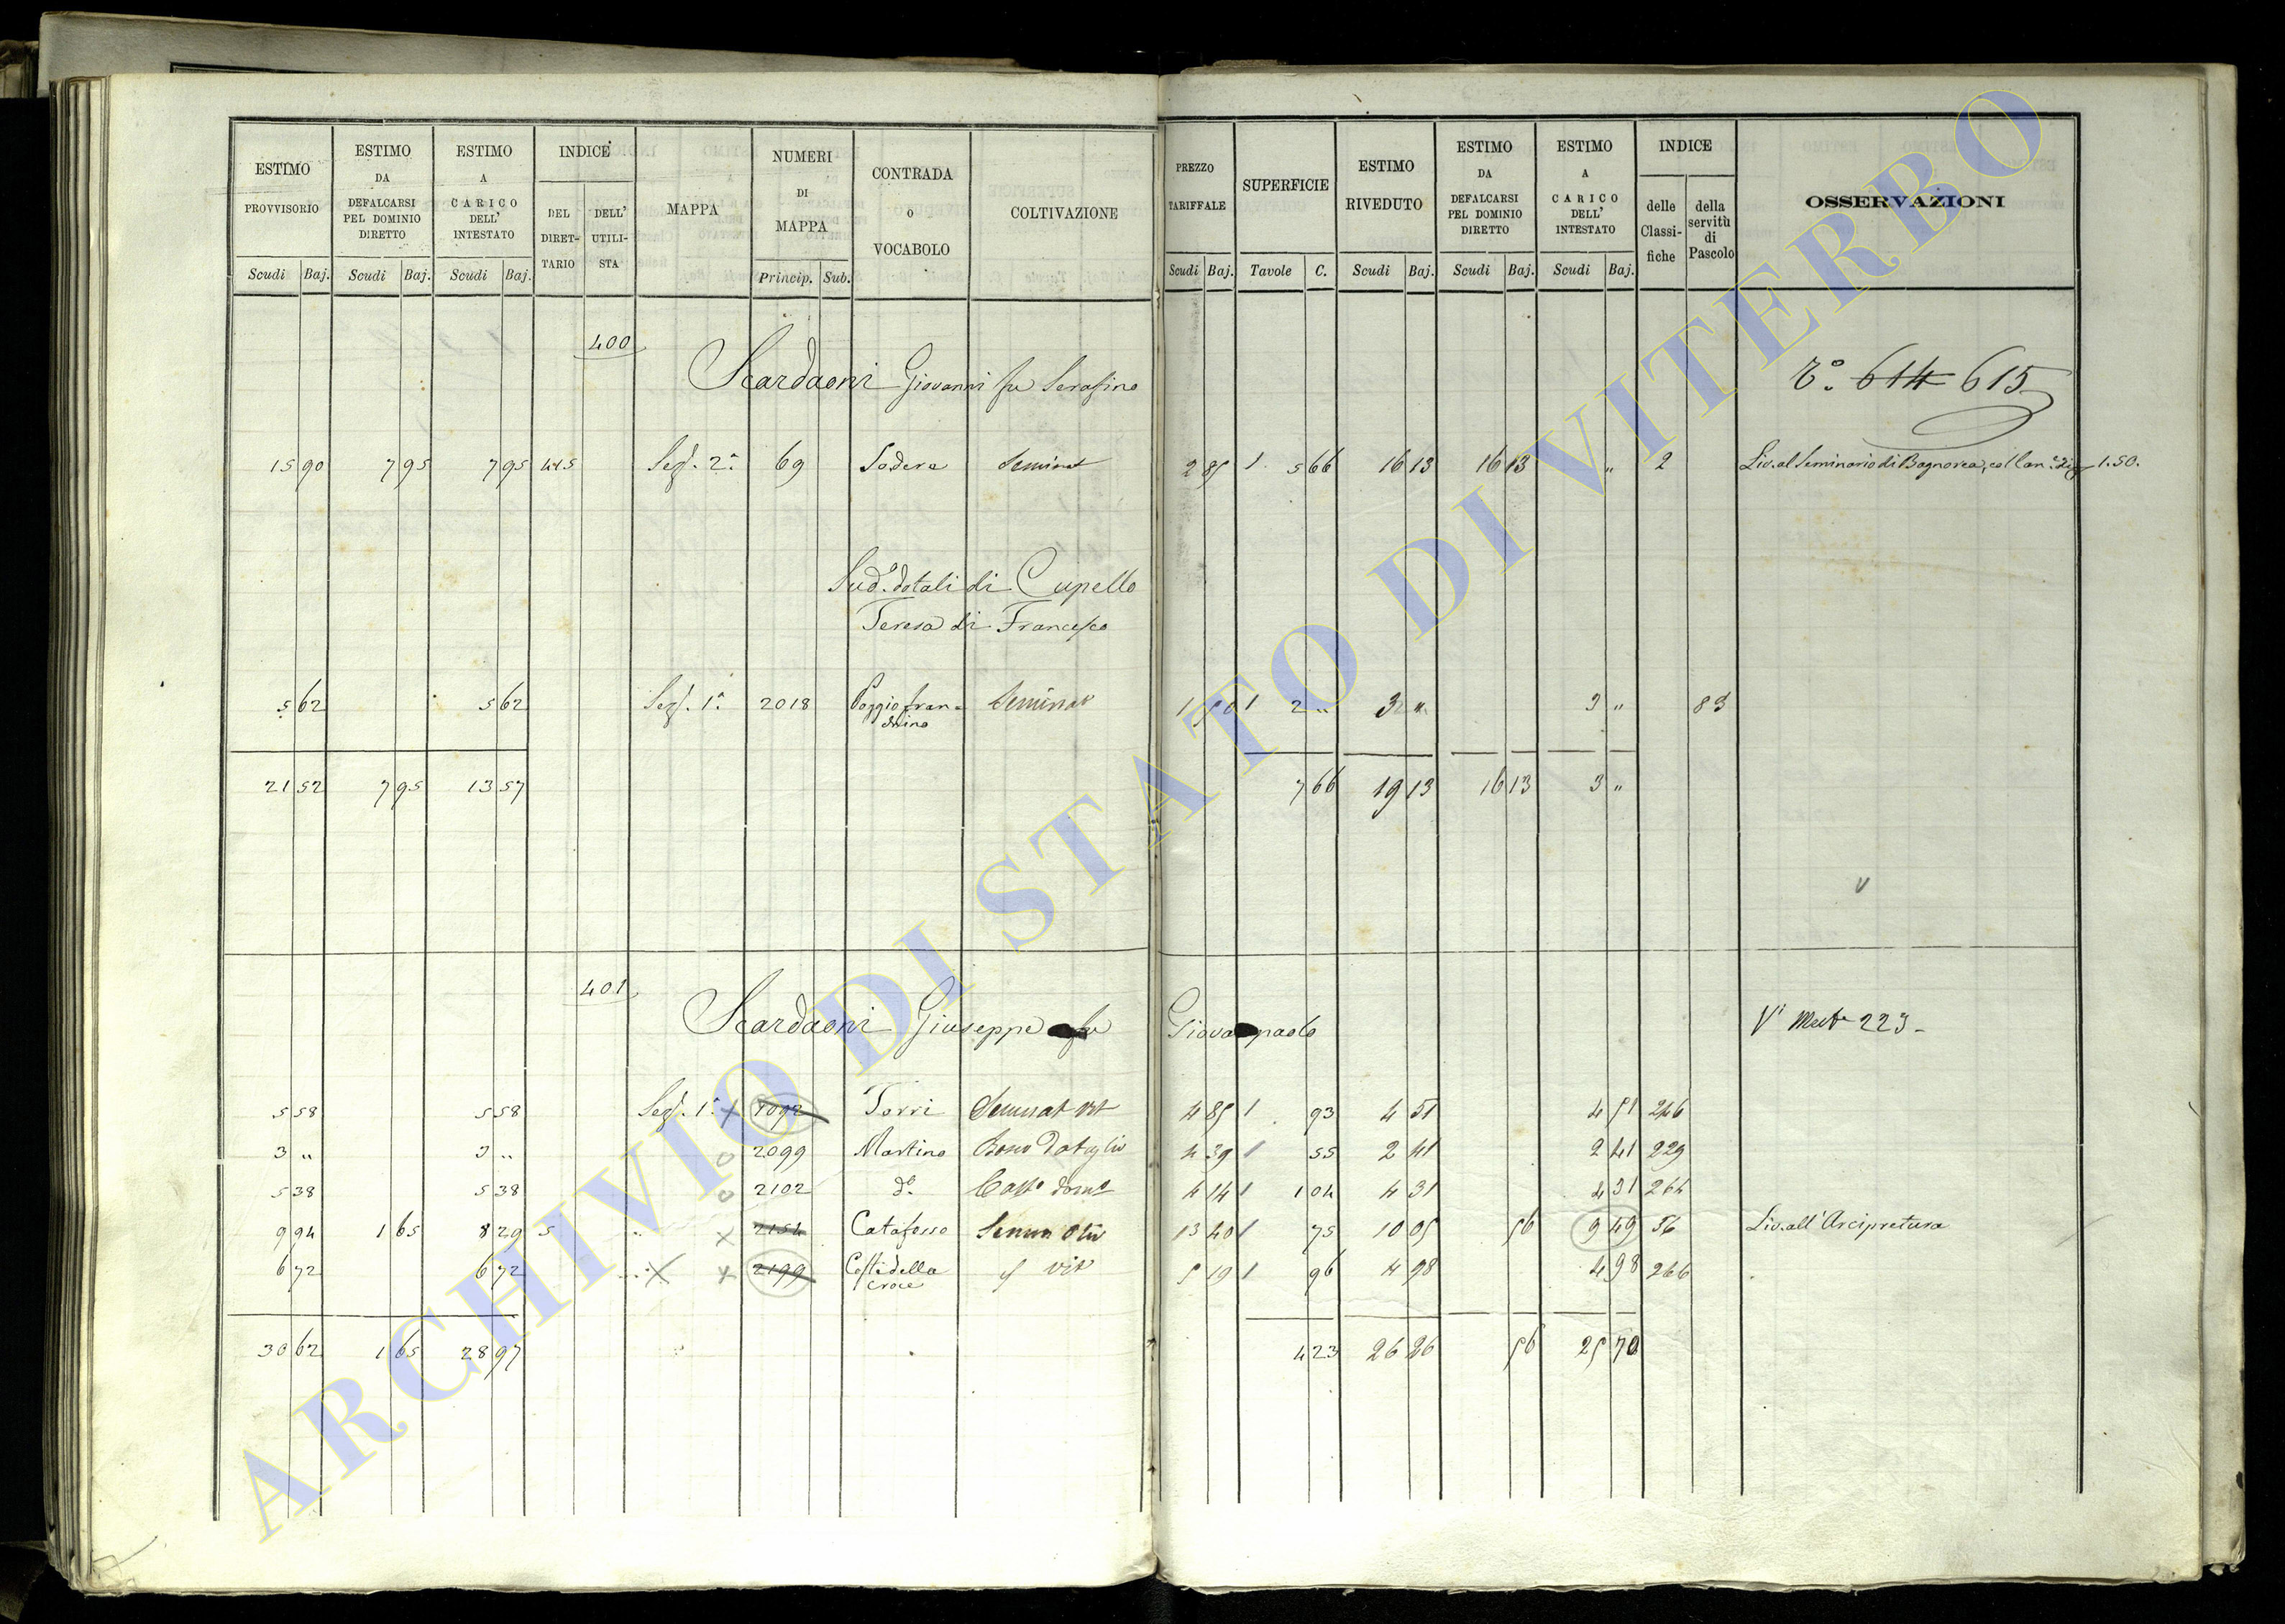 ESTIMO PROVVISORIO Scudi Baj. ESTIMO DA DEFALCARSI PEL DOMINIO DIRETTO Scudi Baj. ESTIMO A CARICO DELL' INTESTATO Scudi Baj. INDICE DEL DIRETTARIO DELL' UTILISTA MAPPA NUMERI DI MAPPA Princip. Sub. CONTRADA o VOCABOLO COLTIVAZIONE PREZZO TARIFFALE Scudi Baj. SUPERFICIE Tavole C. ESTIMO RIVEDUTO Scudi Baj. ESTIMO DA DEFALCARSI PEL DOMINIO DIRETTO Scudi Baj. ESTIMO A CARICO DELL' INTESTATO Scudi Baj. INDICE delle Classifiche della servitù di Pascolo OSSERVAZIONI
400
Scardaoni Giovanni fu Serafino
r.° 614 615
15 90 7 95 7 95 415 Sez. 2.a 69 Sodera Seminat 2 85 1 5 66 16 13 16 13 " 2 Liv. al Seminario di Bagnorea, coll'an. 1.50.
Sud.o dotali di Cupello
Teresa di Francesco
5 62 5 62 Sez. 1.a 2018 Poggio fran= Seminat 1 50 1 2 " 3 " 3 " 83
21 52 7 95 13 57 7 66 19 13 16 13 3 "
401
Scardaoni Giuseppe fu Giova paolo
V' 223
5 58 5 58 Sez. 1.a 2092 Torri Seminat vit 4 85 1 93 4 51 4 51 246
3 " 3 " 2099 Martino Bosco da taglio 4 39 1 55 2 41 2 41 229
5 38 5 38 2102 d.o Cast.o dom.o 4 14 1 1 04 4 31 4 31 264
9 94 1 65 8 29 5 " 2154 Catafosso Semin Oliv 13 40 1 75 10 05 56 9 49 56 Liv. all'Arcipretura
6 72 6 72 2199 Coste della croce vit 5 19 1 96 4 98 4 98 266
30 62 1 65 28 97 4 23 26 26 56 25 70
ARCHIVIO DI STATO DI VITERBO